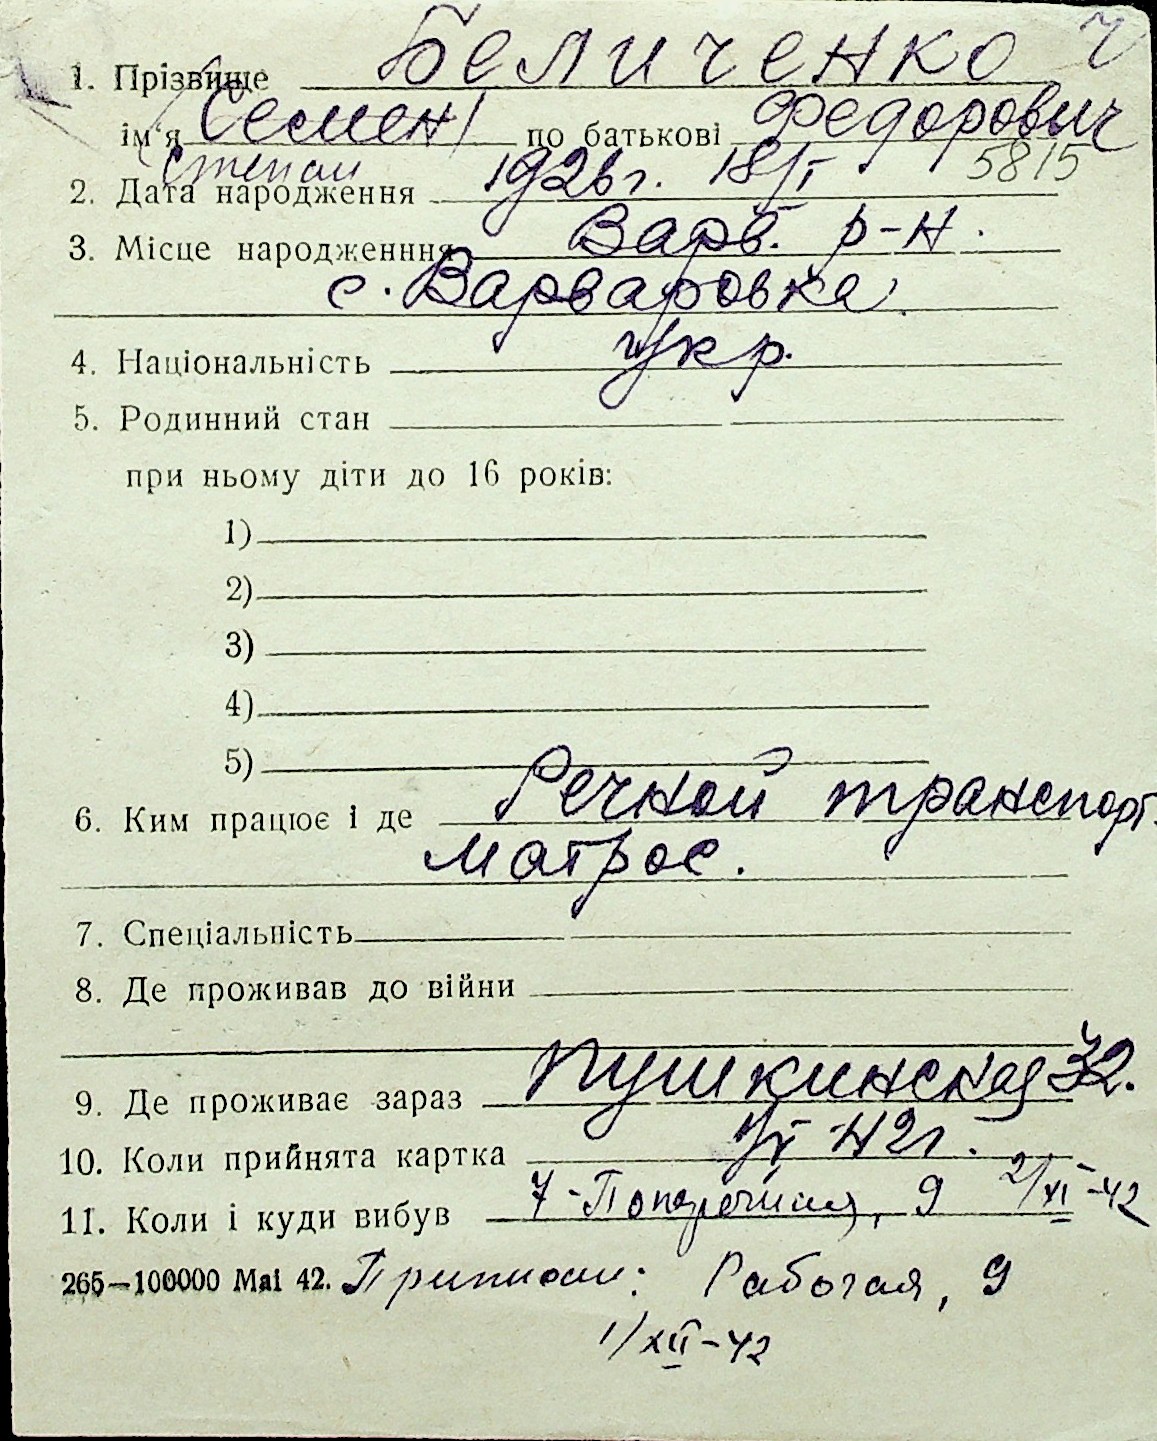 1. Прізвище Беличенко
ім'я Семен по батькові Федорович
Степан 5815
2. Дата народження 1926г. 18/I
3. Місце народженння Варв. р-н.
с. Варваровка.
4. Національність Укр.
5. Родинний стан
при ньому діти до 16 років:
1)
2)
3)
4)
5)
6. Ким працює і де Речной транспорт.
матрос.
7. Спеціальність
8. Де проживав до війни
9. Де проживає зараз Пушкинская 32.
10. Коли прийнята картка 42г.
11. Коли і куди вибув 7-Поперечная, 9 2/XI-42
265—100000 Mai 42. Приписан: Рабочая, 9
1/XII-42